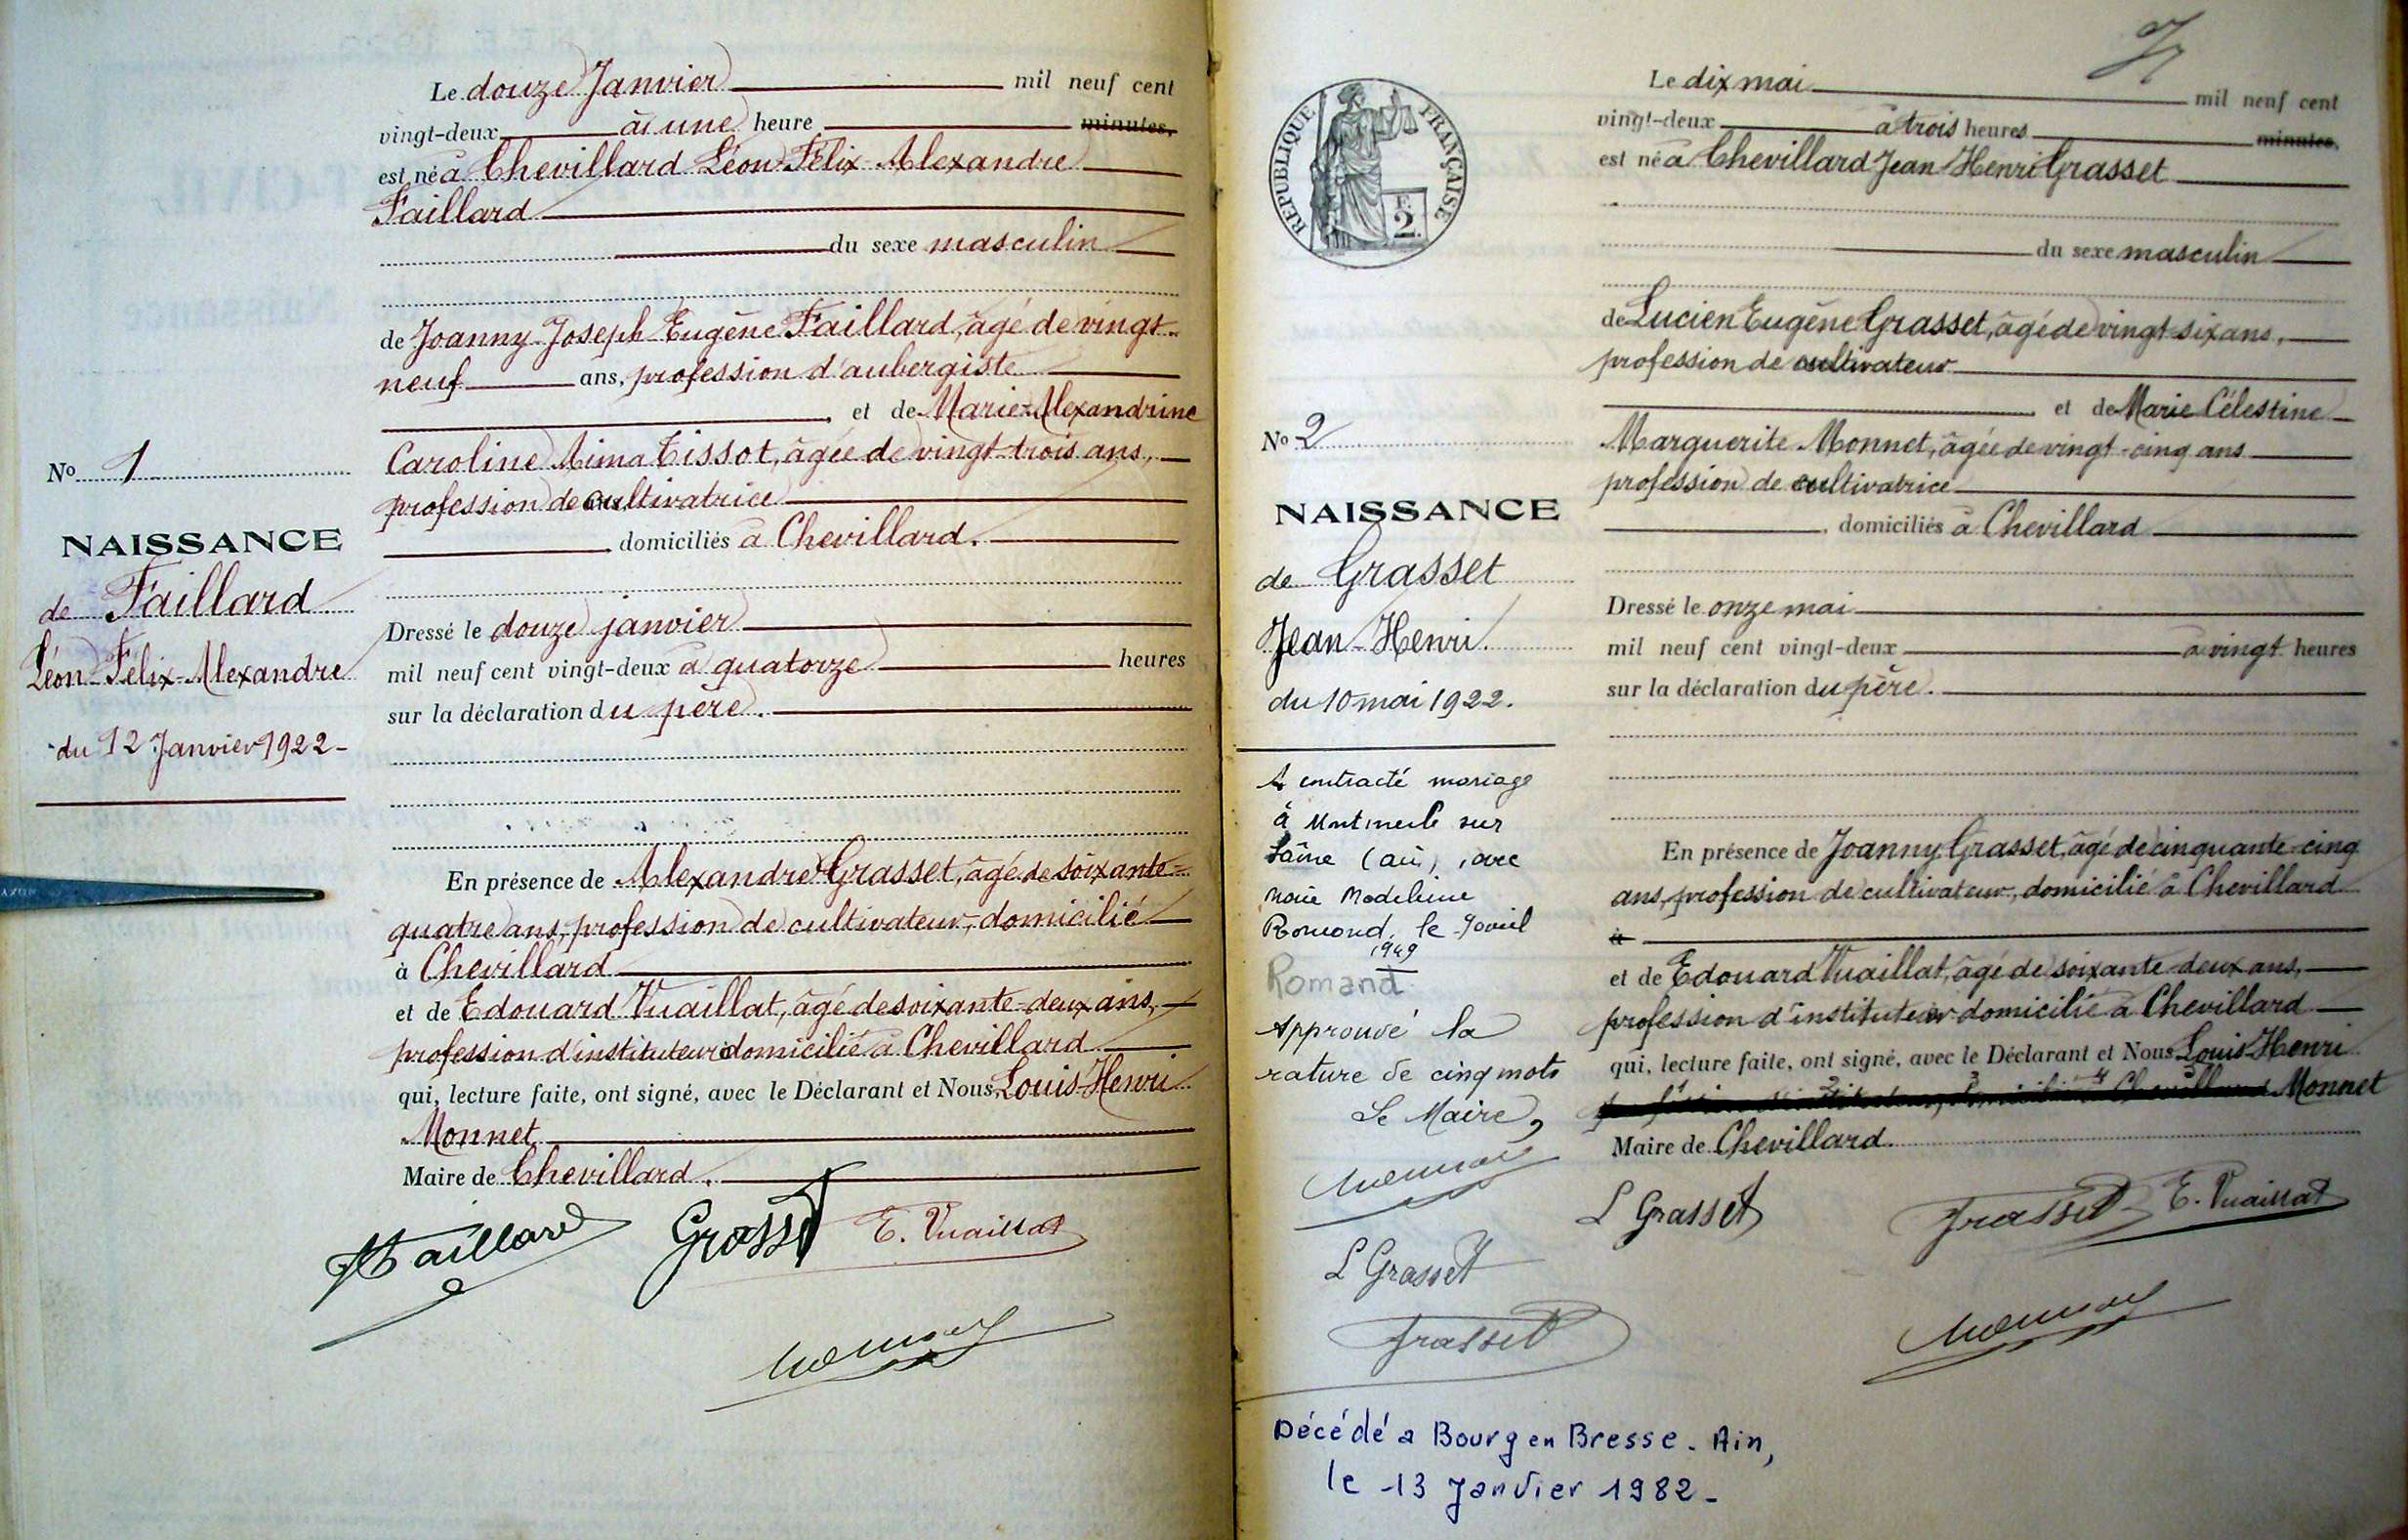 Le douze Janvier mil neuf cent
vingt-deux à une heure minutes,
est né à Chevillard Léon-Félix-Alexandre
Faillard
du sexe masculin
de Joanny-Joseph-Eugène Faillard, âgé de vingt-
neuf ans, profession d'aubergiste
et de Marie-Alexandrine
Caroline Aima Tissot, âgée de vingt-trois ans,
profession de cultivatrice
domiciliés à Chevillard.
Dressé le douze janvier
mil neuf cent vingt-deux à quatorze heures
sur la déclaration du père.
En présence de Alexandre Grasset, âgé de soixante-
quatre ans, profession de cultivateur, domicilié
à Chevillard
et de Edouard Vuaillat, âgé de soixante-deux ans,
profession d'instituteur domicilié à Chevillard
qui, lecture faite, ont signé, avec le Déclarant et Nous, Louis-Henri
Monnet
Maire de Chevillard.
Faillard Grasset E. Vuaillat
Monnet
No 1
NAISSANCE
de Faillard
Léon-Félix-Alexandre
du 12 Janvier 1922-
REPUBLIQUE FRANÇAISE
F.
2.
Le dix mai mil neuf cent
vingt-deux à trois heures minutes.
est né à Chevillard Jean-Henri Grasset
du sexe masculin
de Lucien Eugène Grasset, âgé de vingt-six ans,
profession de cultivateur
et de Marie Célestine
Marguerite Monnet, âgée de vingt-cinq ans
profession de cultivatrice
, domiciliés à Chevillard
Dressé le onze mai
mil neuf cent vingt-deux à vingt heures
sur la déclaration du père.
En présence de Joanny Grasset, âgé de cinquante-cinq
ans, profession de cultivateur, domicilié à Chevillard
à
et de Edouard Vuaillat, âgé de soixante-deux ans,
profession d'instituteur domicilié à Chevillard
qui, lecture faite, ont signé, avec le Déclarant et Nous Louis-Henri
Monnet
Maire de Chevillard.
L Grasset Grasset E. Vuaillat
Monnet
No 2
NAISSANCE
de Grasset
Jean-Henri.
du 10 mai 1922.
A contracté mariage
à Montmerle sur
Saône (Ain), avec
Marie Madeleine
Romand, le 9 avril
1949
Romand
Approuvé la
rature de cinq mots
Le Maire,
Monnet
L Grasset
Grasset
Décédé a Bourg en Bresse. Ain,
le 13 Janvier 1982-